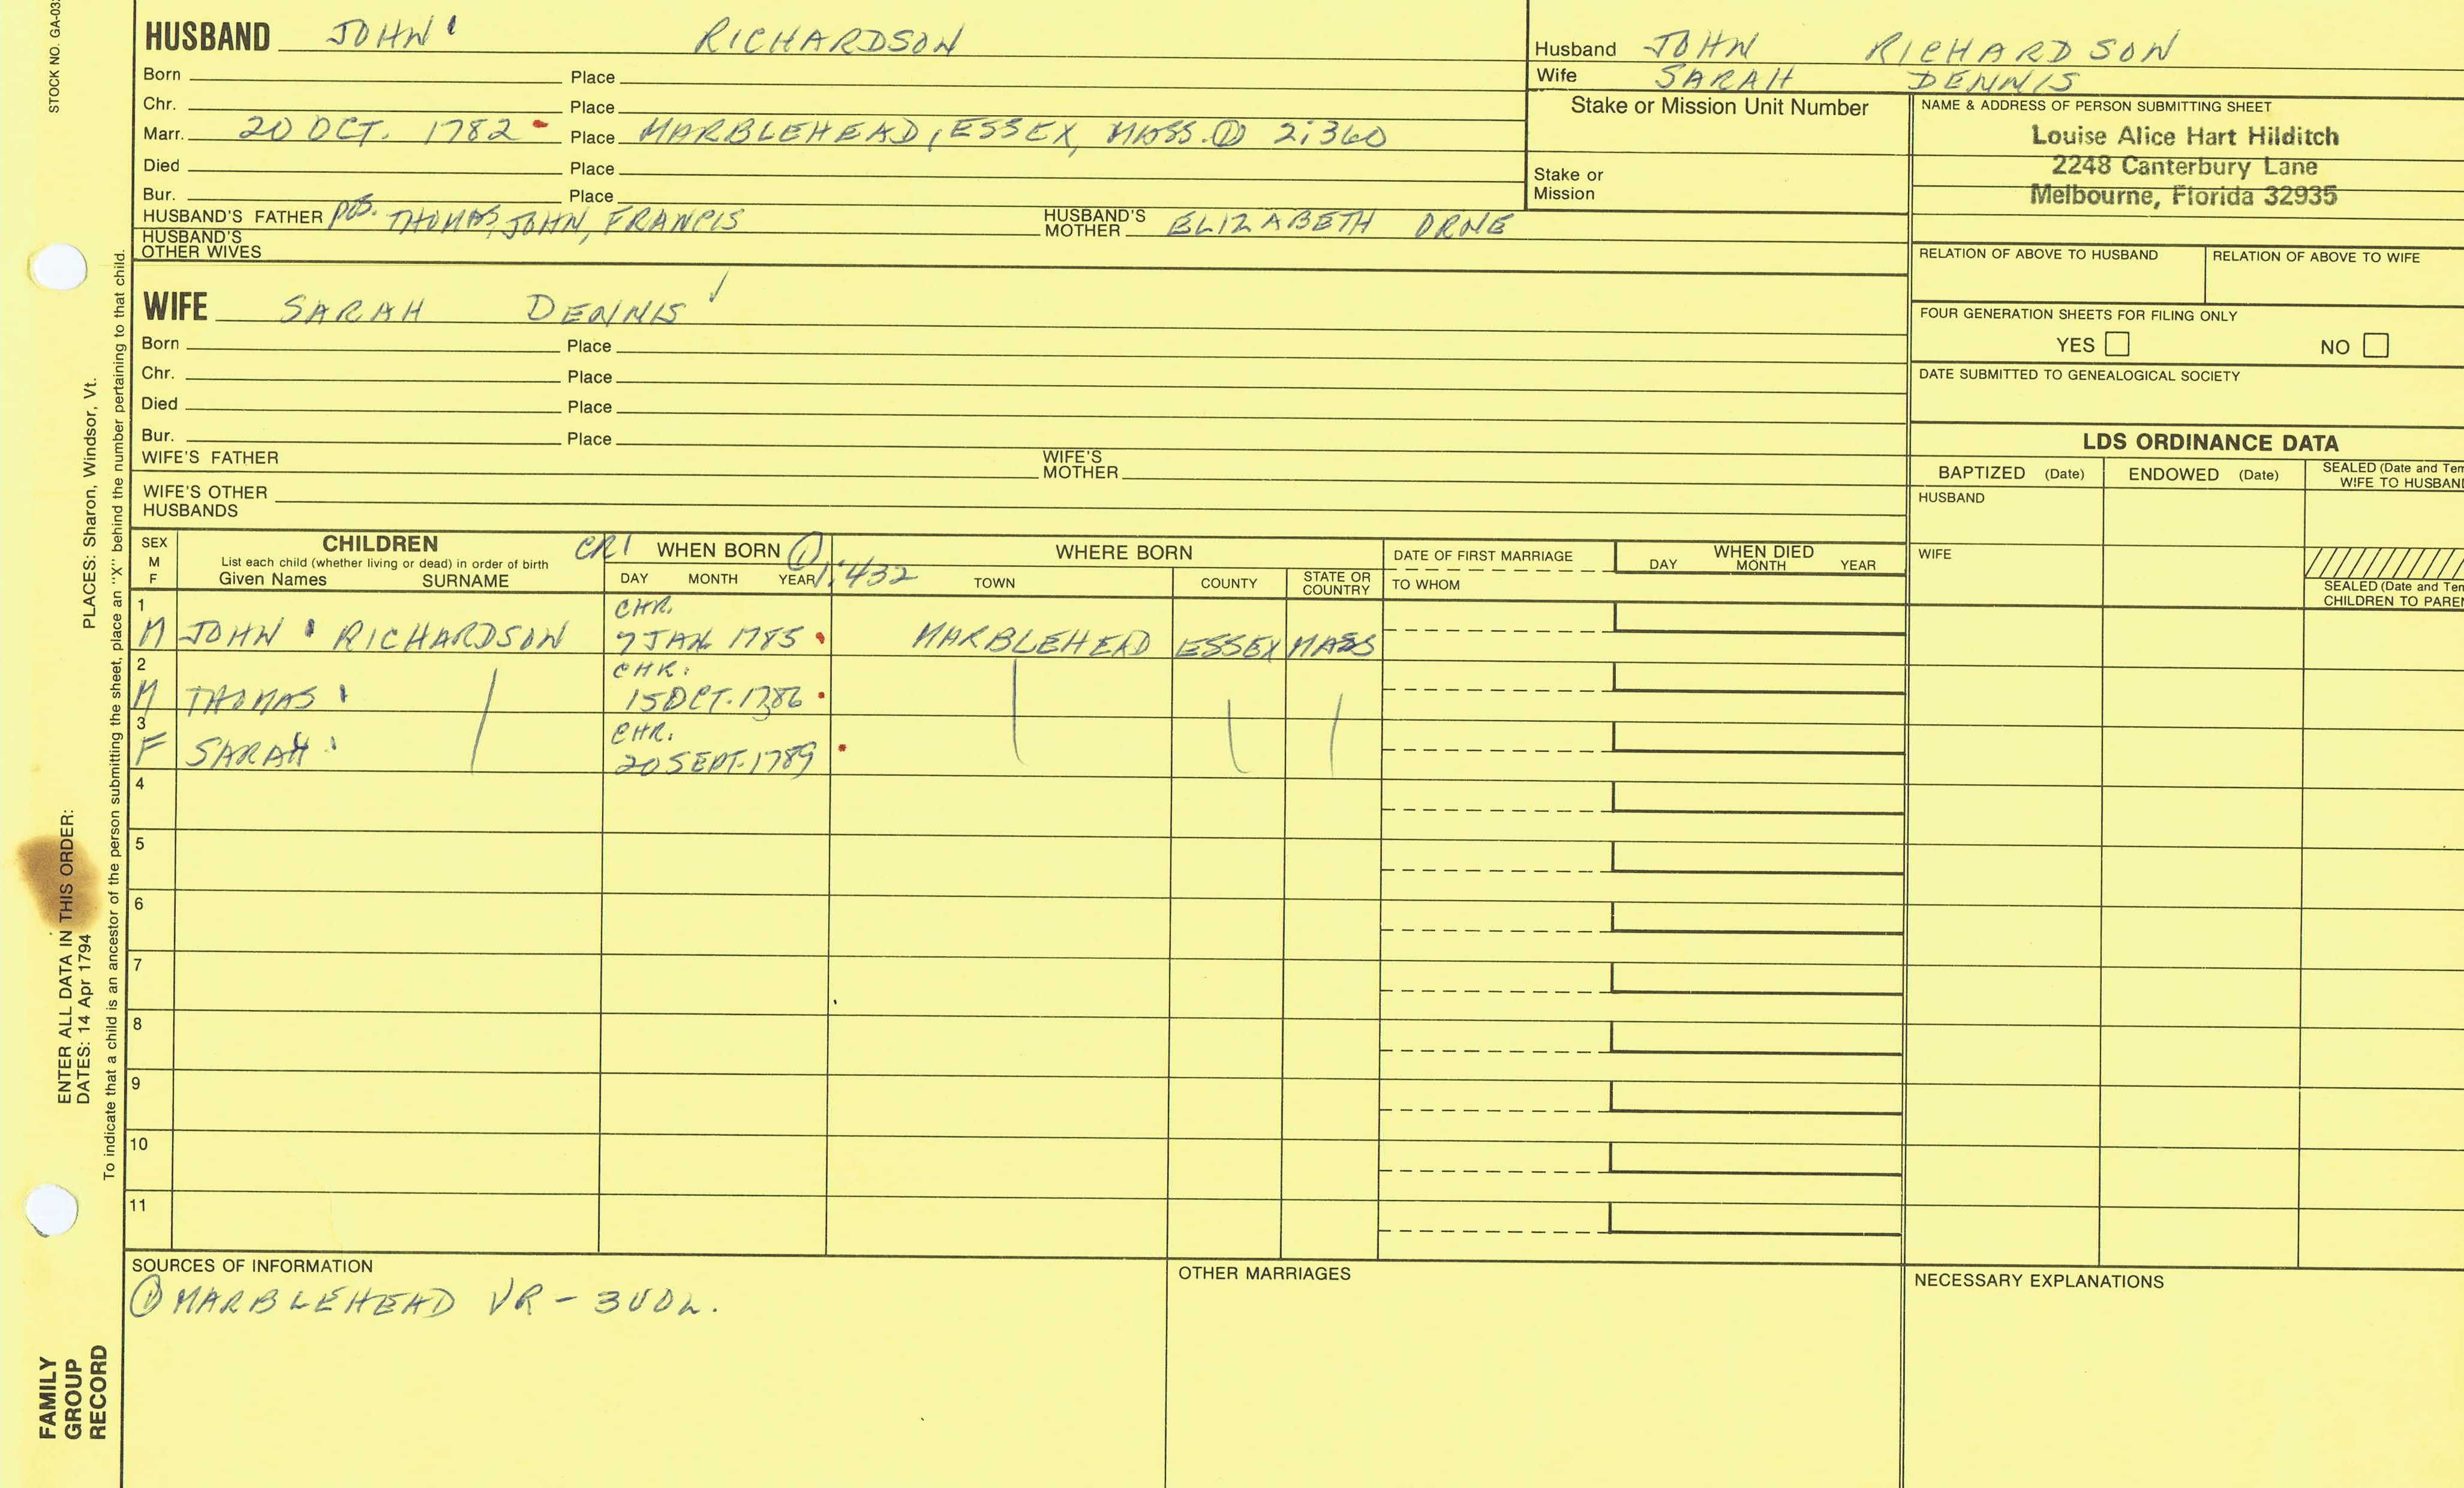 STOCK NO. GA-03
HUSBAND JOHN RICHARDSON
Born Place
Chr. Place
Marr. 20 OCT. 1782 Place MARBLEHEAD, ESSEX, MASS. ① 2:360
Died Place
Bur. Place
HUSBAND'S FATHER POS. THOMAS, JOHN, FRANCIS HUSBAND'S MOTHER ELIZABETH ORNE
HUSBAND'S OTHER WIVES
WIFE SARAH DENNIS
Born Place
Chr. Place
Died Place
Bur. Place
WIFE'S FATHER WIFE'S MOTHER
WIFE'S OTHER HUSBANDS
Husband JOHN RICHARDSON
Wife SARAH DENNIS
Stake or Mission Unit Number
Stake or Mission
NAME & ADDRESS OF PERSON SUBMITTING SHEET
Louise Alice Hart Hilditch
2248 Canterbury Lane
Melbourne, Florida 32935
RELATION OF ABOVE TO HUSBAND RELATION OF ABOVE TO WIFE
FOUR GENERATION SHEETS FOR FILING ONLY
YES NO
DATE SUBMITTED TO GENEALOGICAL SOCIETY
LDS ORDINANCE DATA
BAPTIZED (Date) ENDOWED (Date) SEALED (Date and Tem
WIFE TO HUSBAND
HUSBAND
WIFE
SEALED (Date and Tem
CHILDREN TO PAREN
SEX M F
CHILDREN
List each child (whether living or dead) in order of birth
Given Names SURNAME
CR1 WHEN BORN ① 1:432
DAY MONTH YEAR
WHERE BORN
TOWN COUNTY STATE OR COUNTRY
DATE OF FIRST MARRIAGE
TO WHOM
WHEN DIED
DAY MONTH YEAR
1 CHR.
M JOHN RICHARDSON 7 JAN. 1785 MARBLEHEAD ESSEX MASS
2 CHR:
M THOMAS 15 OCT. 1786
3 CHR:
F SARAH 20 SEPT. 1789
4
5
6
7
8
9
10
11
SOURCES OF INFORMATION
① MARBLEHEAD VR - 3 VOL.
OTHER MARRIAGES
NECESSARY EXPLANATIONS
PLACES: Sharon, Windsor, Vt.
ENTER ALL DATA IN THIS ORDER:
DATES: 14 Apr 1794
To indicate that a child is an ancestor of the person submitting the sheet, place an "X" behind the number pertaining to that child.
FAMILY
GROUP
RECORD